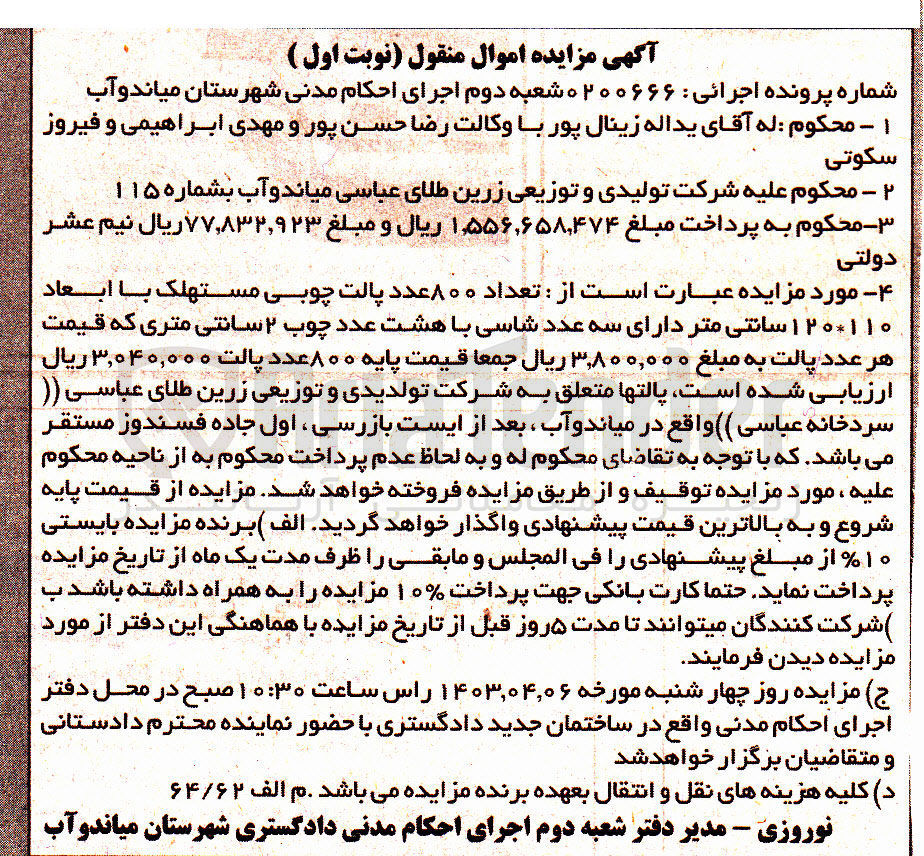 آگهی مزایده اموال منقول (نوبت اول )
شماره پرونده اجرائی : ۰۲۰۰۶۶۶شعبه دوم اجرای احکام مدنی شهرستان میاندوآب
۱ - محکوم :له آقای یداله زینال پور با وکالت رضا حسن پور و مهدی ابراهیمی و فیروز
سکوتی
۲ - محکوم علیه شرکت تولیدی و توزیعی زرین طلای عباسی میاندوآب بشماره ۱۱۵
۳-محکوم به پرداخت مبلغ ۱,۵۵۶,۶۵۸,۴۷۴ ریال و مبلغ ۷۷,۸۳۲,۹۲۳ریال نیم عشر
دولتی
۴- مورد مزایده عبارت است از : تعداد ۸۰۰عدد پالت چوبی مستهلک با ابعاد
۱۱۰*۱۲۰سانتی متر دارای سه عدد شاسی با هشت عدد چوب ۲سانتی متری که قیمت
هر عدد پالت به مبلغ ۳,۸۰۰,۰۰۰ریال جمعا قیمت پایه ۸۰۰عدد پالت ۳,۰۴۰,۰۰۰ریال
ارزیابی شده است، پالتها متعلق به شرکت تولدیدی و توزیعی زرین طلای عباسی ((
سردخانه عباسی ))واقع در میاندوآب ، بعد از ایست بازرسی ، اول جاده فسندوز مستقر
می باشد. که با توجه به تقاضای محکوم له و به لحاظ عدم پرداخت محکوم به از ناحیه محکوم
علیه ، مورد مزایده توقیف و از طریق مزایده فروخته خواهد شد. مزایده از قیمت پایه
شروع و به بالاترین قیمت پیشنهادی واگذار خواهد گردید. الف )برنده مزایده بایستی
۱۰% از مبلغ پیشنهادی را فی المجلس و مابقی را ظرف مدت یک ماه از تاریخ مزایده
پرداخت نماید. حتما کارت بانکی جهت پرداخت ۱۰% مزایده را به همراه داشته باشد ب
)شرکت کنندگان میتوانند تا مدت ۵روز قبل از تاریخ مزایده با هماهنگی این دفتر از مورد
مزایده دیدن فرمایند.
ج) مزایده روز چهار شنبه مورخه ۱۴۰۳,۰۴,۰۶ راس ساعت ۱۰:۳۰صبح در محل دفتر
اجرای احکام مدنی واقع در ساختمان جدید دادگستری با حضور نماینده محترم دادستانی
و متقاضیان برگزار خواهدشد
د) کلیه هزینه های نقل و انتقال بعهده برنده مزایده می باشد .م الف ۶۴/۶۲
نوروزی - مدیر دفتر شعبه دوم اجرای احکام مدنی دادگستری شهرستان میاندوآب